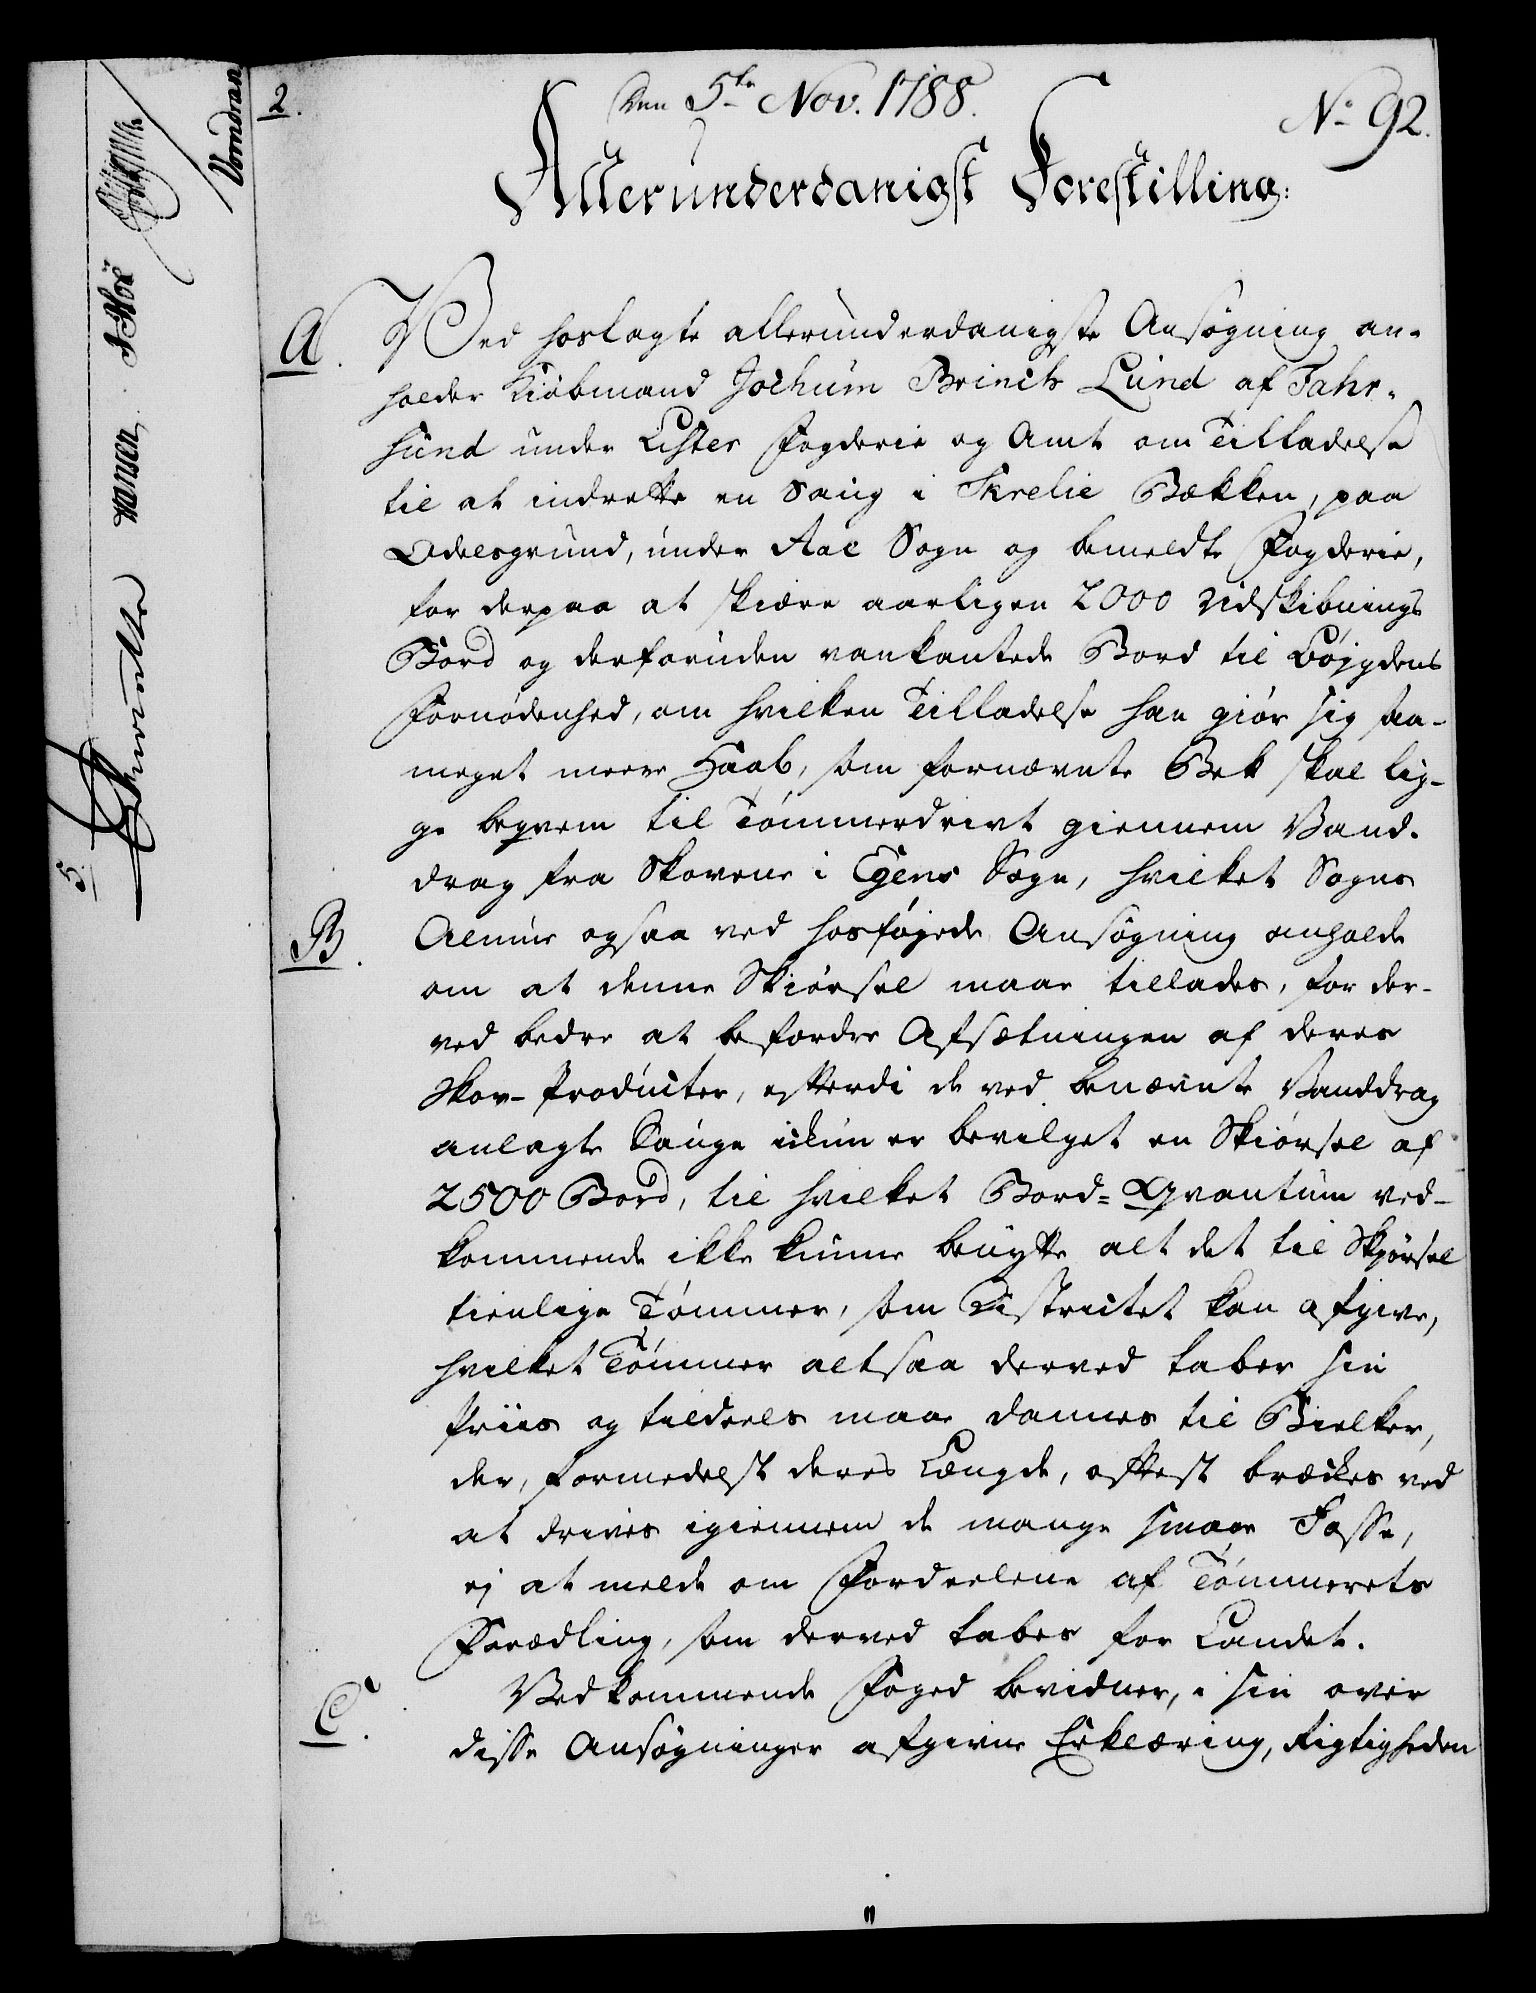 2.
Den 5te Nov. 1788.
No 92.
Allerunderdanigst Forestilling:
A.
Ved hoslagte allerunderdanigste Ansøgning an-
holder Kiøbmand Jochum Brinch Lund af Fahr-
sund under Lister Fogderie og Amt om Tilladelse
til at indrette en Saug i Skrelie Bækken, paa
Odelsgrund, under Aae Sogn og bemeldte Fogderie,
for derpaa at skiære aarligen 2000 Udskibnings
Bord og derforuden vankantede Bord til Bøygdens
Fornødenhed, om hvilken Tilladelse han giør sig saa-
meget meere Haab, som fornævnte Bek skal lig-
ge beqvem til Tømmerdrivt giennem Vand-
drag fra Skovene i Egens Sogn, hvilket Sogns
B.
Almue ogsaa ved hosføyede Ansøgning anholde
om at denne Skiørsel maae tillades, for der-
ved bedre at befordre Afsætningen af deres
Skov-Producter, efterdi de ved benævnte Vanddrag
anlagte Sauge ickun er bevilget en Skiørsel af
2500 Bord, til hvilket Bord-Qvantum ved-
kommende ikke kunne benytte alt det til Skjørsel
tienlige Tømmer, som Districtet kan afgive,
hvilket Tømmer altsaa derved taber sin
Priis og tildeels maae dannes til Bielker,
der, formedelst deres Længde, oftest brækkes ved
at drives igiennem de mange smaae Fosse,
ej at melde om Fordeelene af Tømmerets
Forædling, som derved tabes for Landet.
C.
Vedkommende Foged bevidner, i sin over
disse Ansøgninger afgivne Erklæring, Rigtigheden
5.